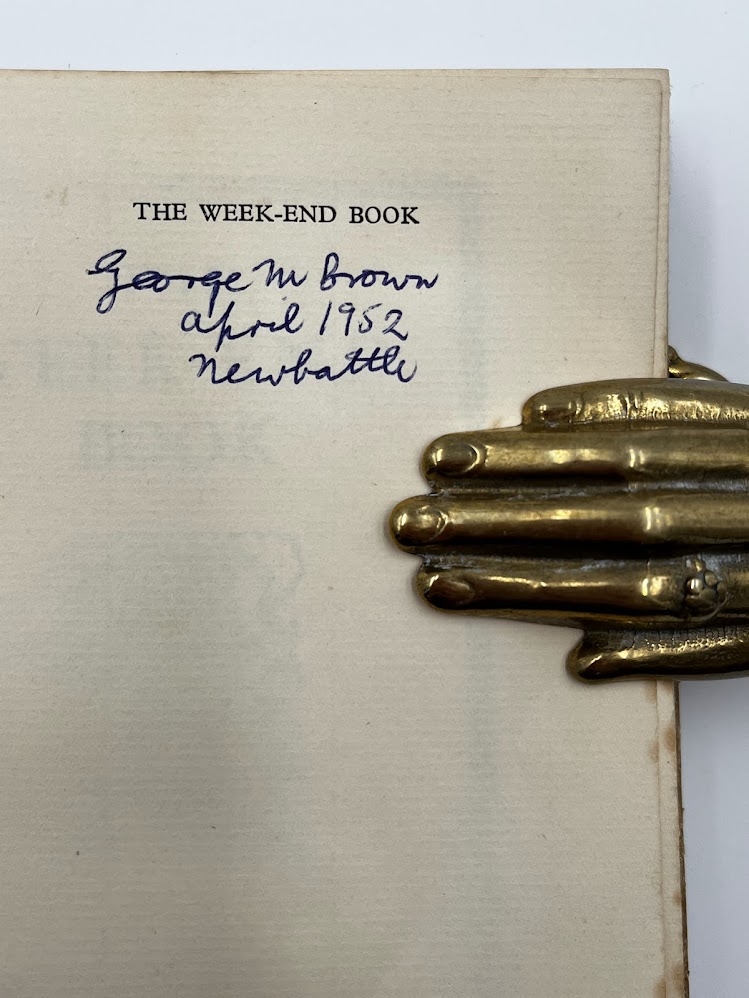 THE WEEK-END BOOK
George M Brown
April 1952
Newbattle